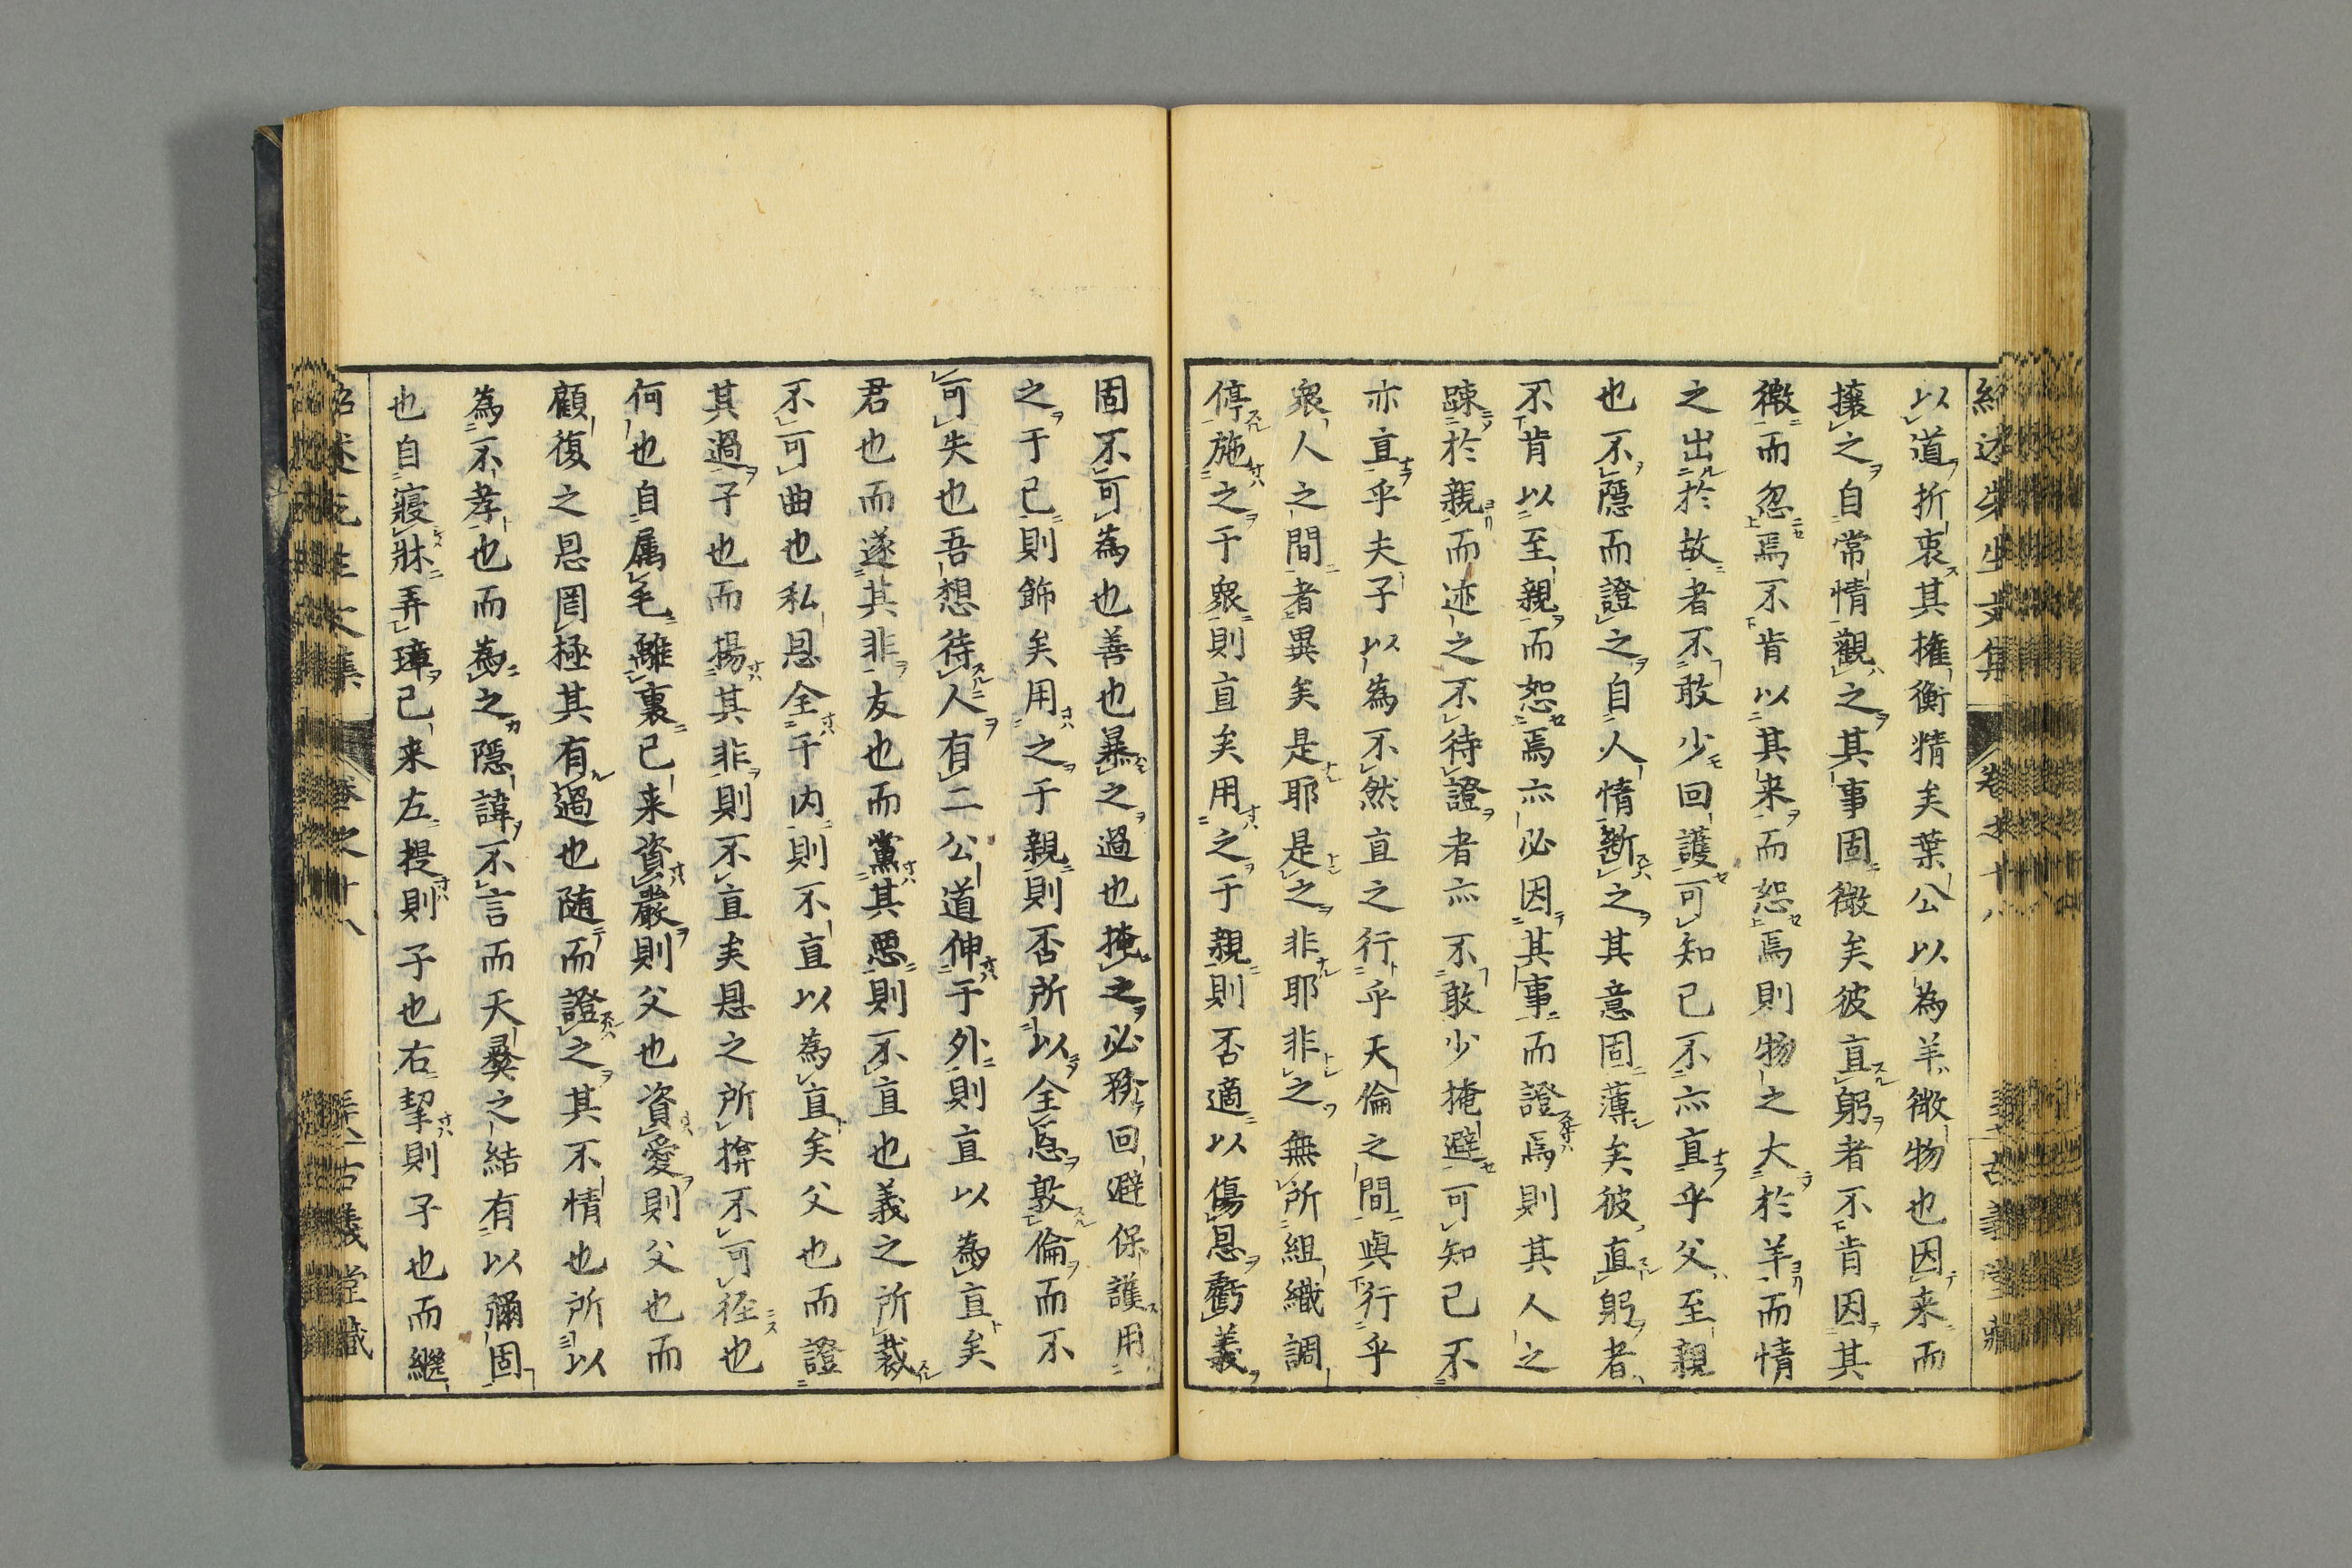 紹述先生文集 卷之十八 古義堂藏
以道折衷其権衡精矣葉公以為羊微物也因来而
攘之自常情觀之其事固微矣彼直躬者不肯因其
微而忽焉不肯以其来而恕焉則物之大於羊而情
之出於故者不敢少回護可知已不亦直乎父至親
也不隱而證之自人情斷之其意固薄矣彼直躬者
不肯以至親而恕焉亦必因其事而證焉則其人之
踈於親而迹之不待證者亦不敢少掩避可知已不
亦直乎夫子以為不然直之行乎天倫之間與行乎
衆人之間者異矣是耶是之非耶非之無所組織調
停施之于衆則直矣用之于親則否適以傷恩虧義
固不可為也善也暴之過也掩之必務回避保護用
之于已則飾矣用之于親則否所以全恩敦倫而不
可失也吾想待人有二公道伸于外則直以為直矣
君也而遂其非友也而黨其惡則不直也義之所裁
不可曲也私恩全于内則不直以為直矣父也而證
其過子也而揚其非則不直矣恩之所揜不可径也
何也自属毛離裏已来資嚴則父也資愛則父也而
顧復之恩罔極其有過也随而證之其不情也所以
為不孝也而為之隱諱不言而天彝之結有以彌固
也自寢牀弄璋已来左提則子也右挈則子也而繼
紹述先生文集 卷之十八 古義堂藏